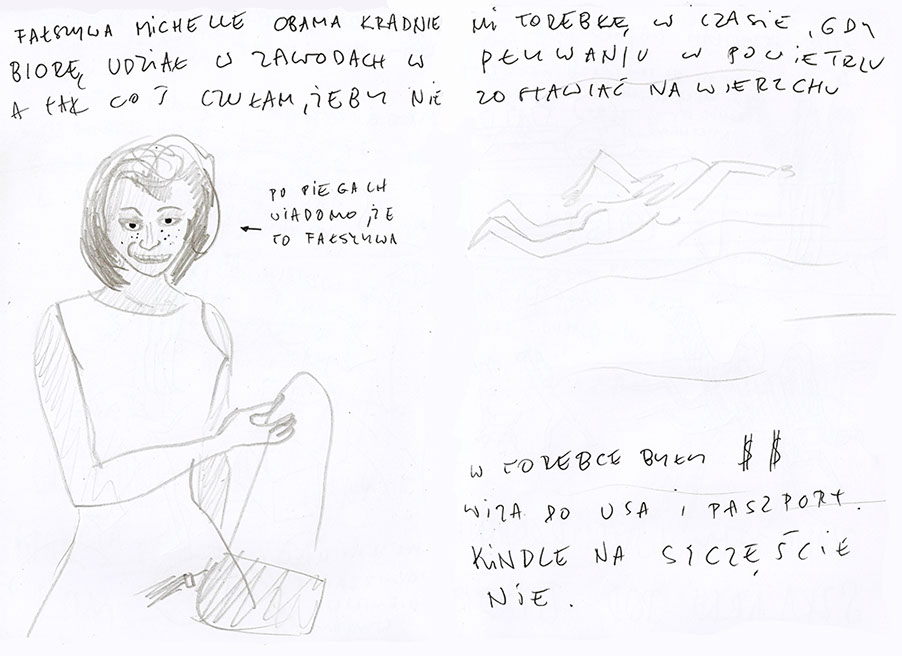 FAŁSZYWA MICHELLE OBAMA KRADNIE MI TOREBKĘ W CZASIE, GDY
BIORĘ UDZIAŁ W ZAWODACH W PŁYWANIU W POWIETRZU
A TAK COŚ CZUŁAM, ŻEBY NIE ZOSTAWIAĆ NA WIERZCHU
PO PIEGACH
WIADOMO, ŻE
TO FAŁSZYWA
W TOREBCE BYŁY $ $
WIZA DO USA I PASZPORT.
KINDLE NA SZCZĘŚCIE
NIE.